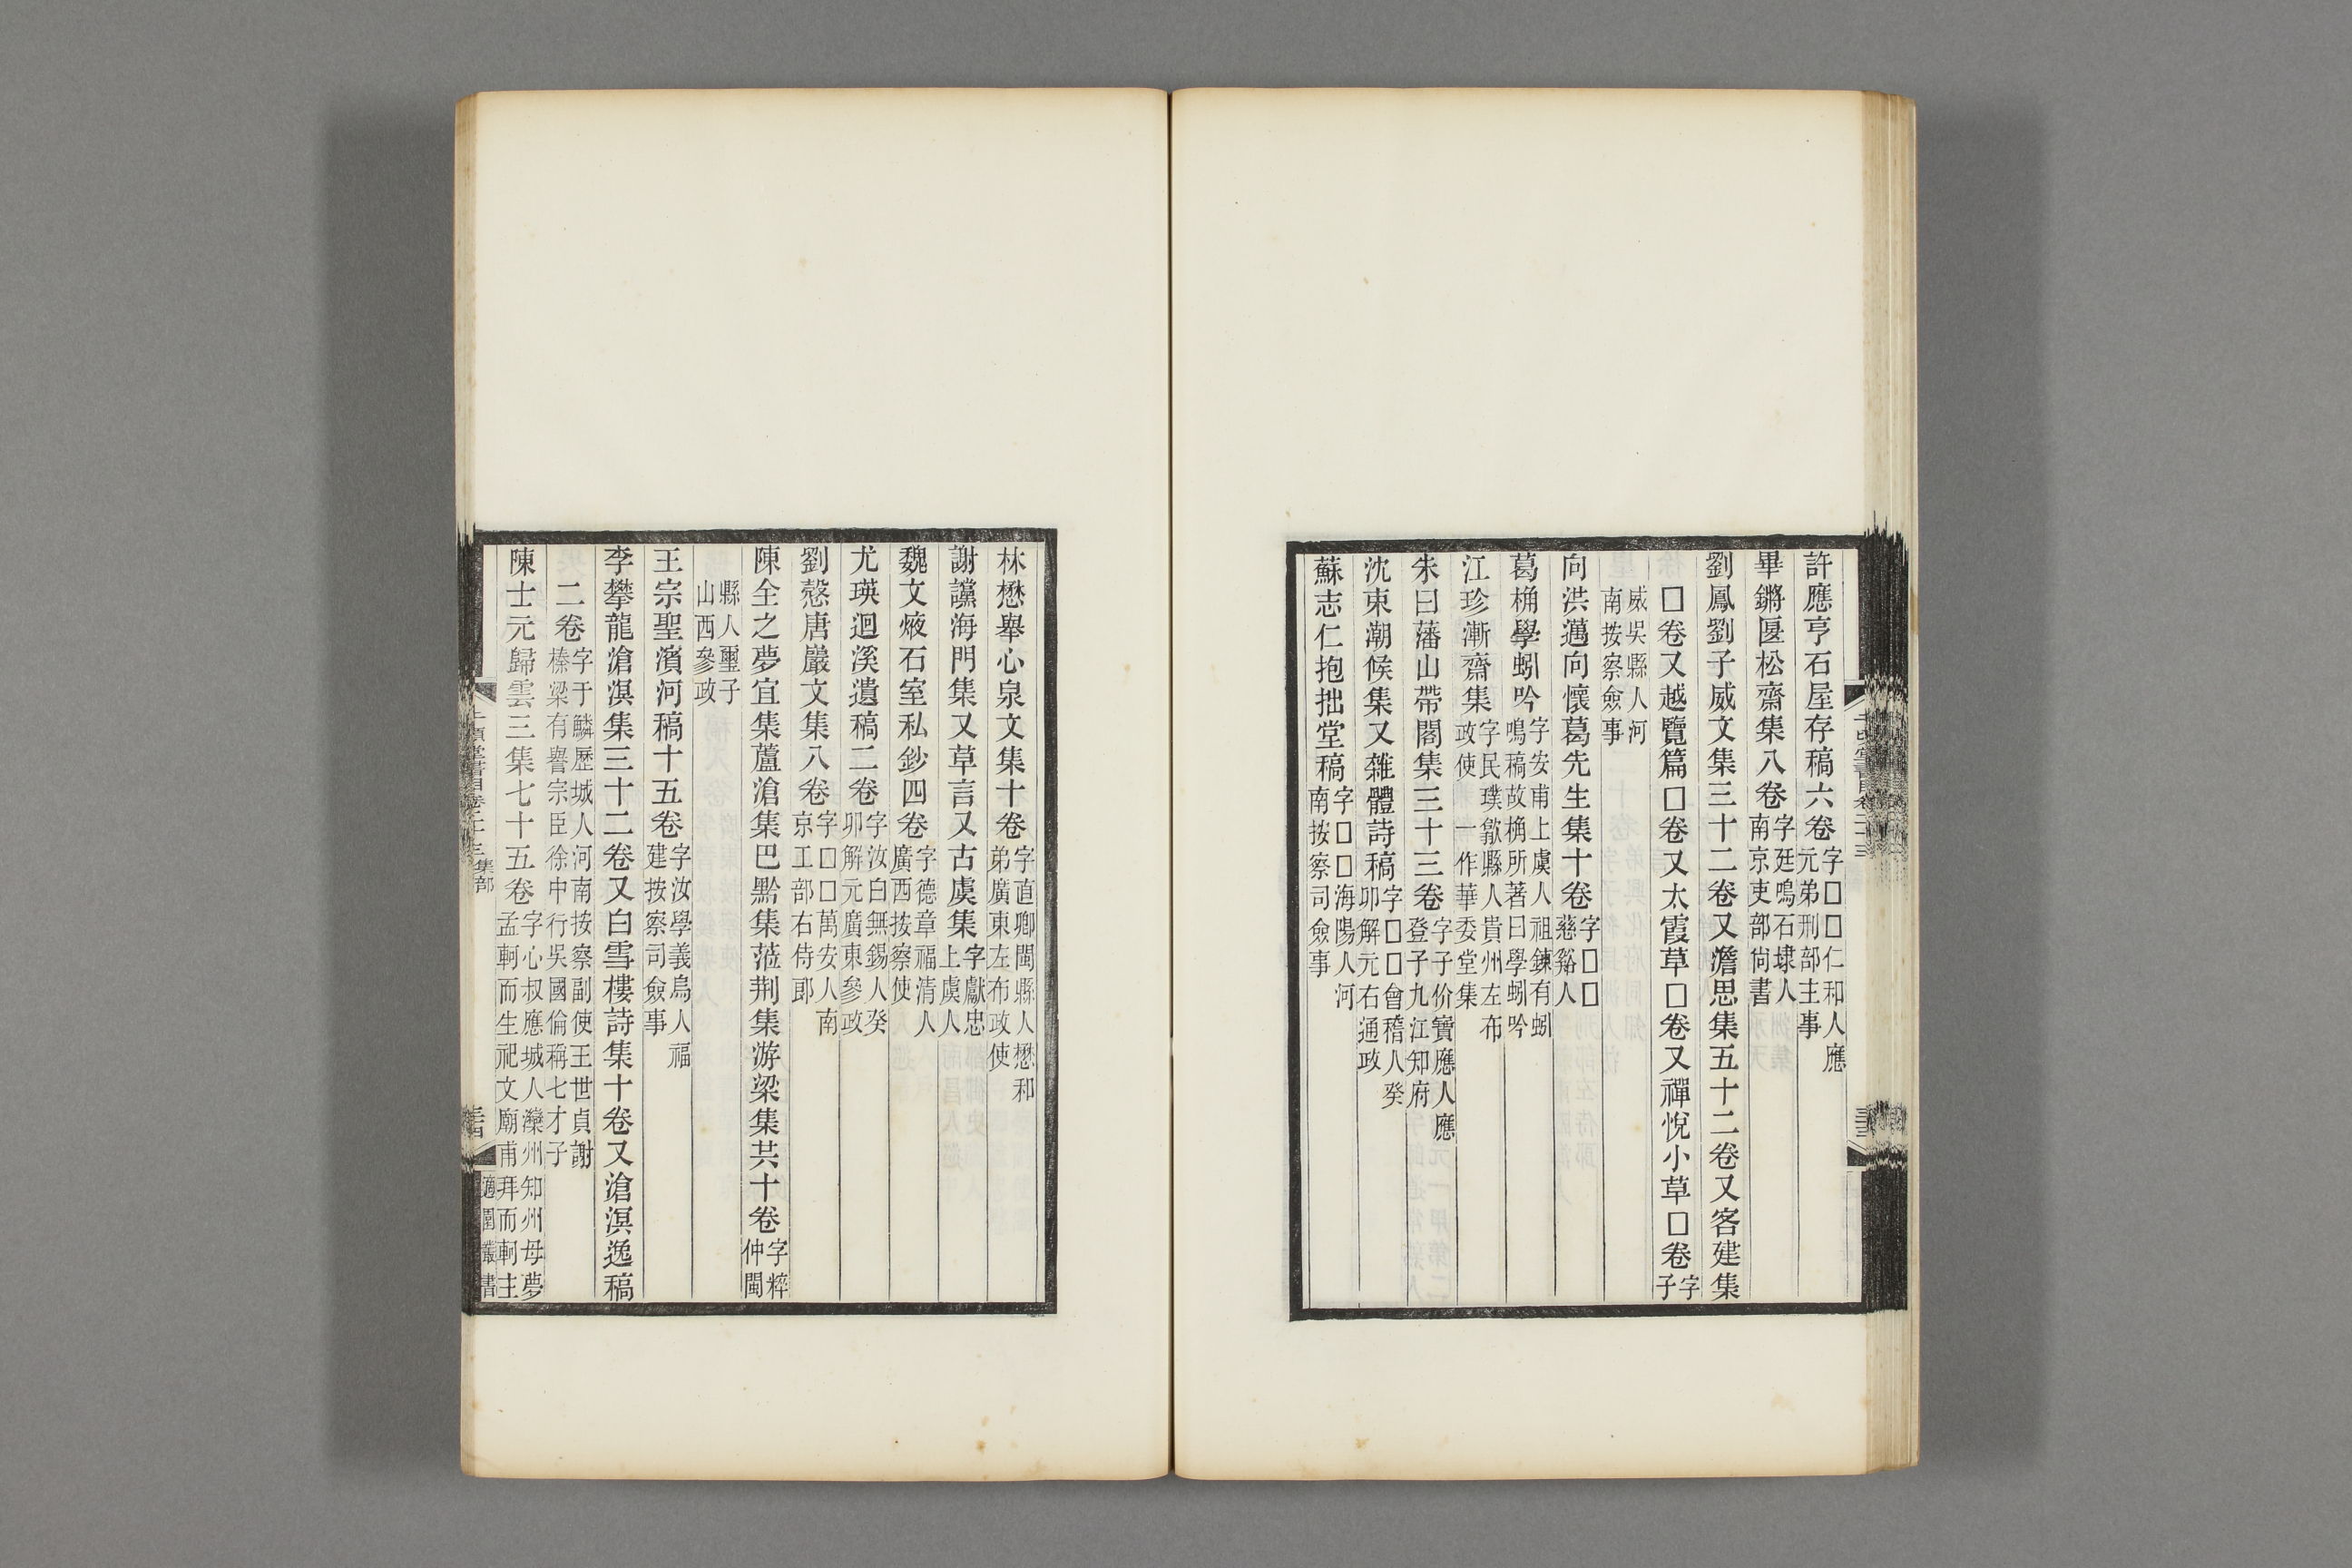 許應亨石屋存稿六卷字囗囗仁和人應元弟刑部主事
畢鏘匽松齋集八卷字廷鳴石埭人南京吏部尚書
劉鳳劉子威文集三十二卷又澹思集五十二卷又客建集
囗卷又越覽篇囗卷又太霞草囗卷又禪悅小草囗卷字子
威吳縣人河南按察僉事
向洪邁向懷葛先生集十卷字囗囗慈谿人
葛桷學蚓吟字安甫上虞人祖鍊有蚓鳴稿故桷所著曰學蚓吟
江珍漸齋集字民璞歙縣人貴州左布政使 一作華委堂集
朱曰藩山帶閣集三十三卷字子价寶應人應登子九江知府
沈東潮候集又雜體詩稿字囗囗會稽人癸卯解元右通政
蘇志仁抱拙堂稿字囗囗海陽人河南按察司僉事
林懋舉心泉文集十卷字直卿閩縣人懋和弟廣東左布政使
謝讜海門集又草言又古虞集字獻忠上虞人
魏文焲石室私鈔四卷字德章福清人廣西按察使
尤瑛迴溪遺稿二卷字汝白無錫人癸卯解元廣東參政
劉慤唐巖文集八卷字囗囗萬安人南京工部右侍郎
陳全之夢宜集蘆滄集巴黔集蒞荆集游梁集共十卷字粹仲閩
縣人墨子山西參政
王宗聖濱河稿十五卷字汝學義烏人福建按察司僉事
李攀龍滄溟集三十二卷又白雪樓詩集十卷又滄溟逸稿
二卷字于鱗歷城人河南按察副使王世貞謝榛梁有譽宗臣徐中行吳國倫稱七才子
陳士元歸雲三集七十五卷字心叔應城人灤州知州母夢孟軻而生祀文廟甫拜而軻主
千頃堂書目卷二十三集部
三十四
適園叢書